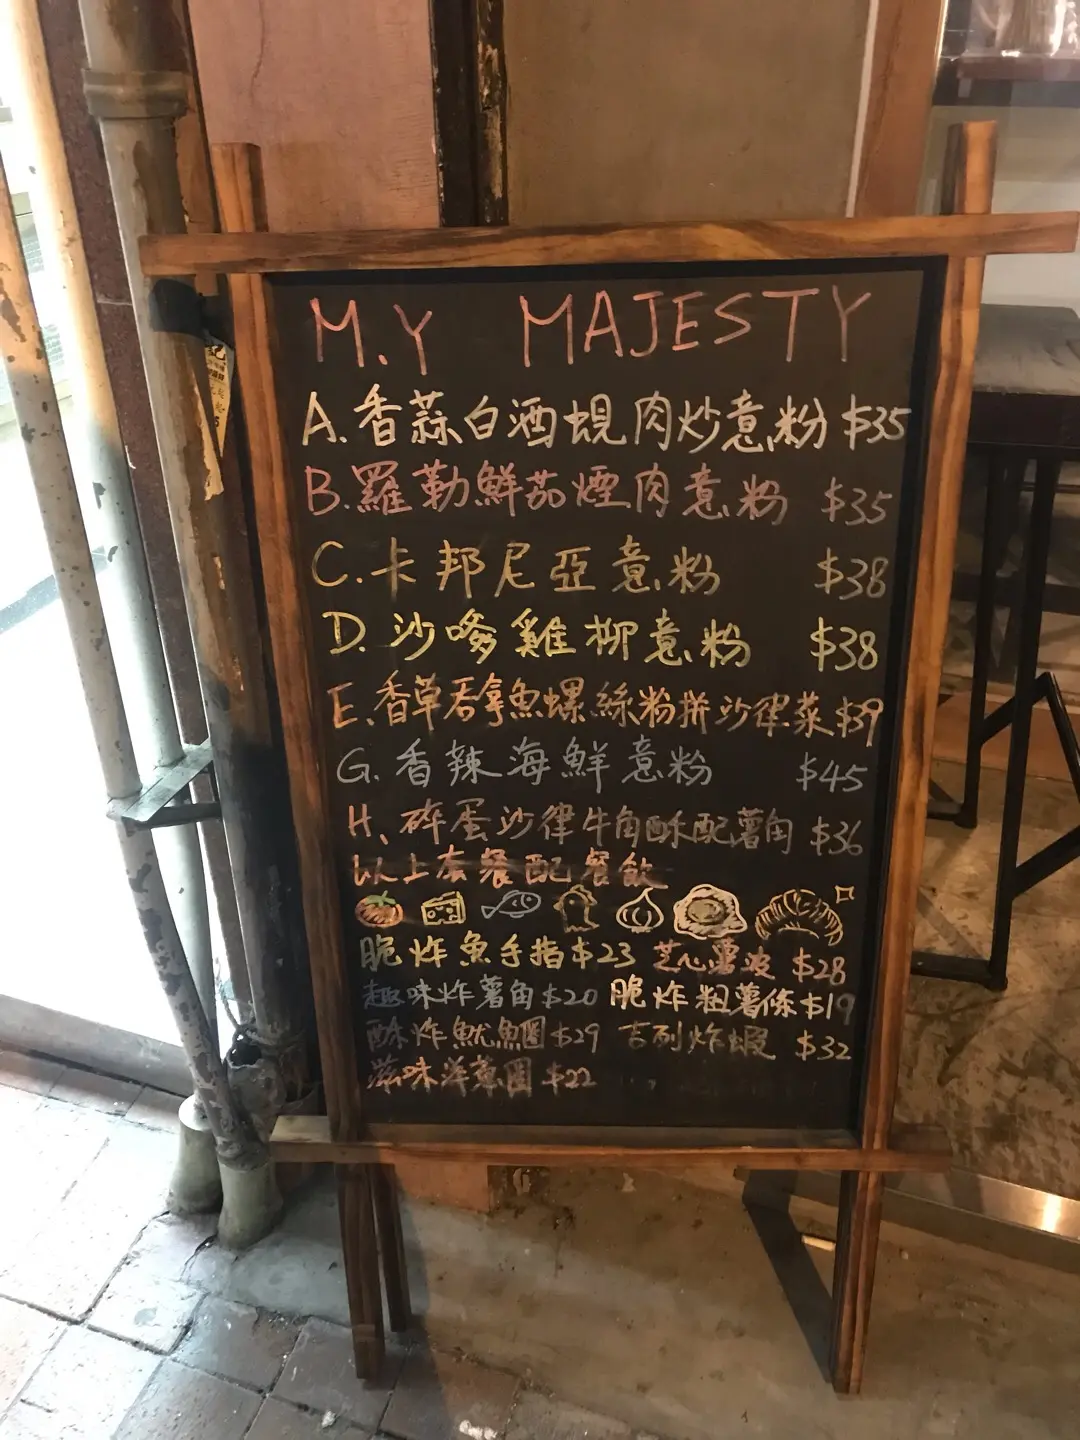 M.Y MAJESTY
A.香蒜白酒蜆肉炒意粉 $35
B.羅勒鮮茄煙肉意粉 $35
C.卡邦尼亞意粉 $38
D.沙嗲雞柳意粉 $38
E.香草吞拿魚螺絲粉拼沙律菜 $39
G.香辣海鮮意粉 $45
H.碎蛋沙律牛角酥配薯角 $36
以上套餐配餐飲
脆炸魚手指 $23 芝心薯波 $28
趣味炸薯角 $20 脆炸粗薯條 $19
酥炸魷魚圈 $29 吉列炸蝦 $32
滋味洋蔥圈 $22